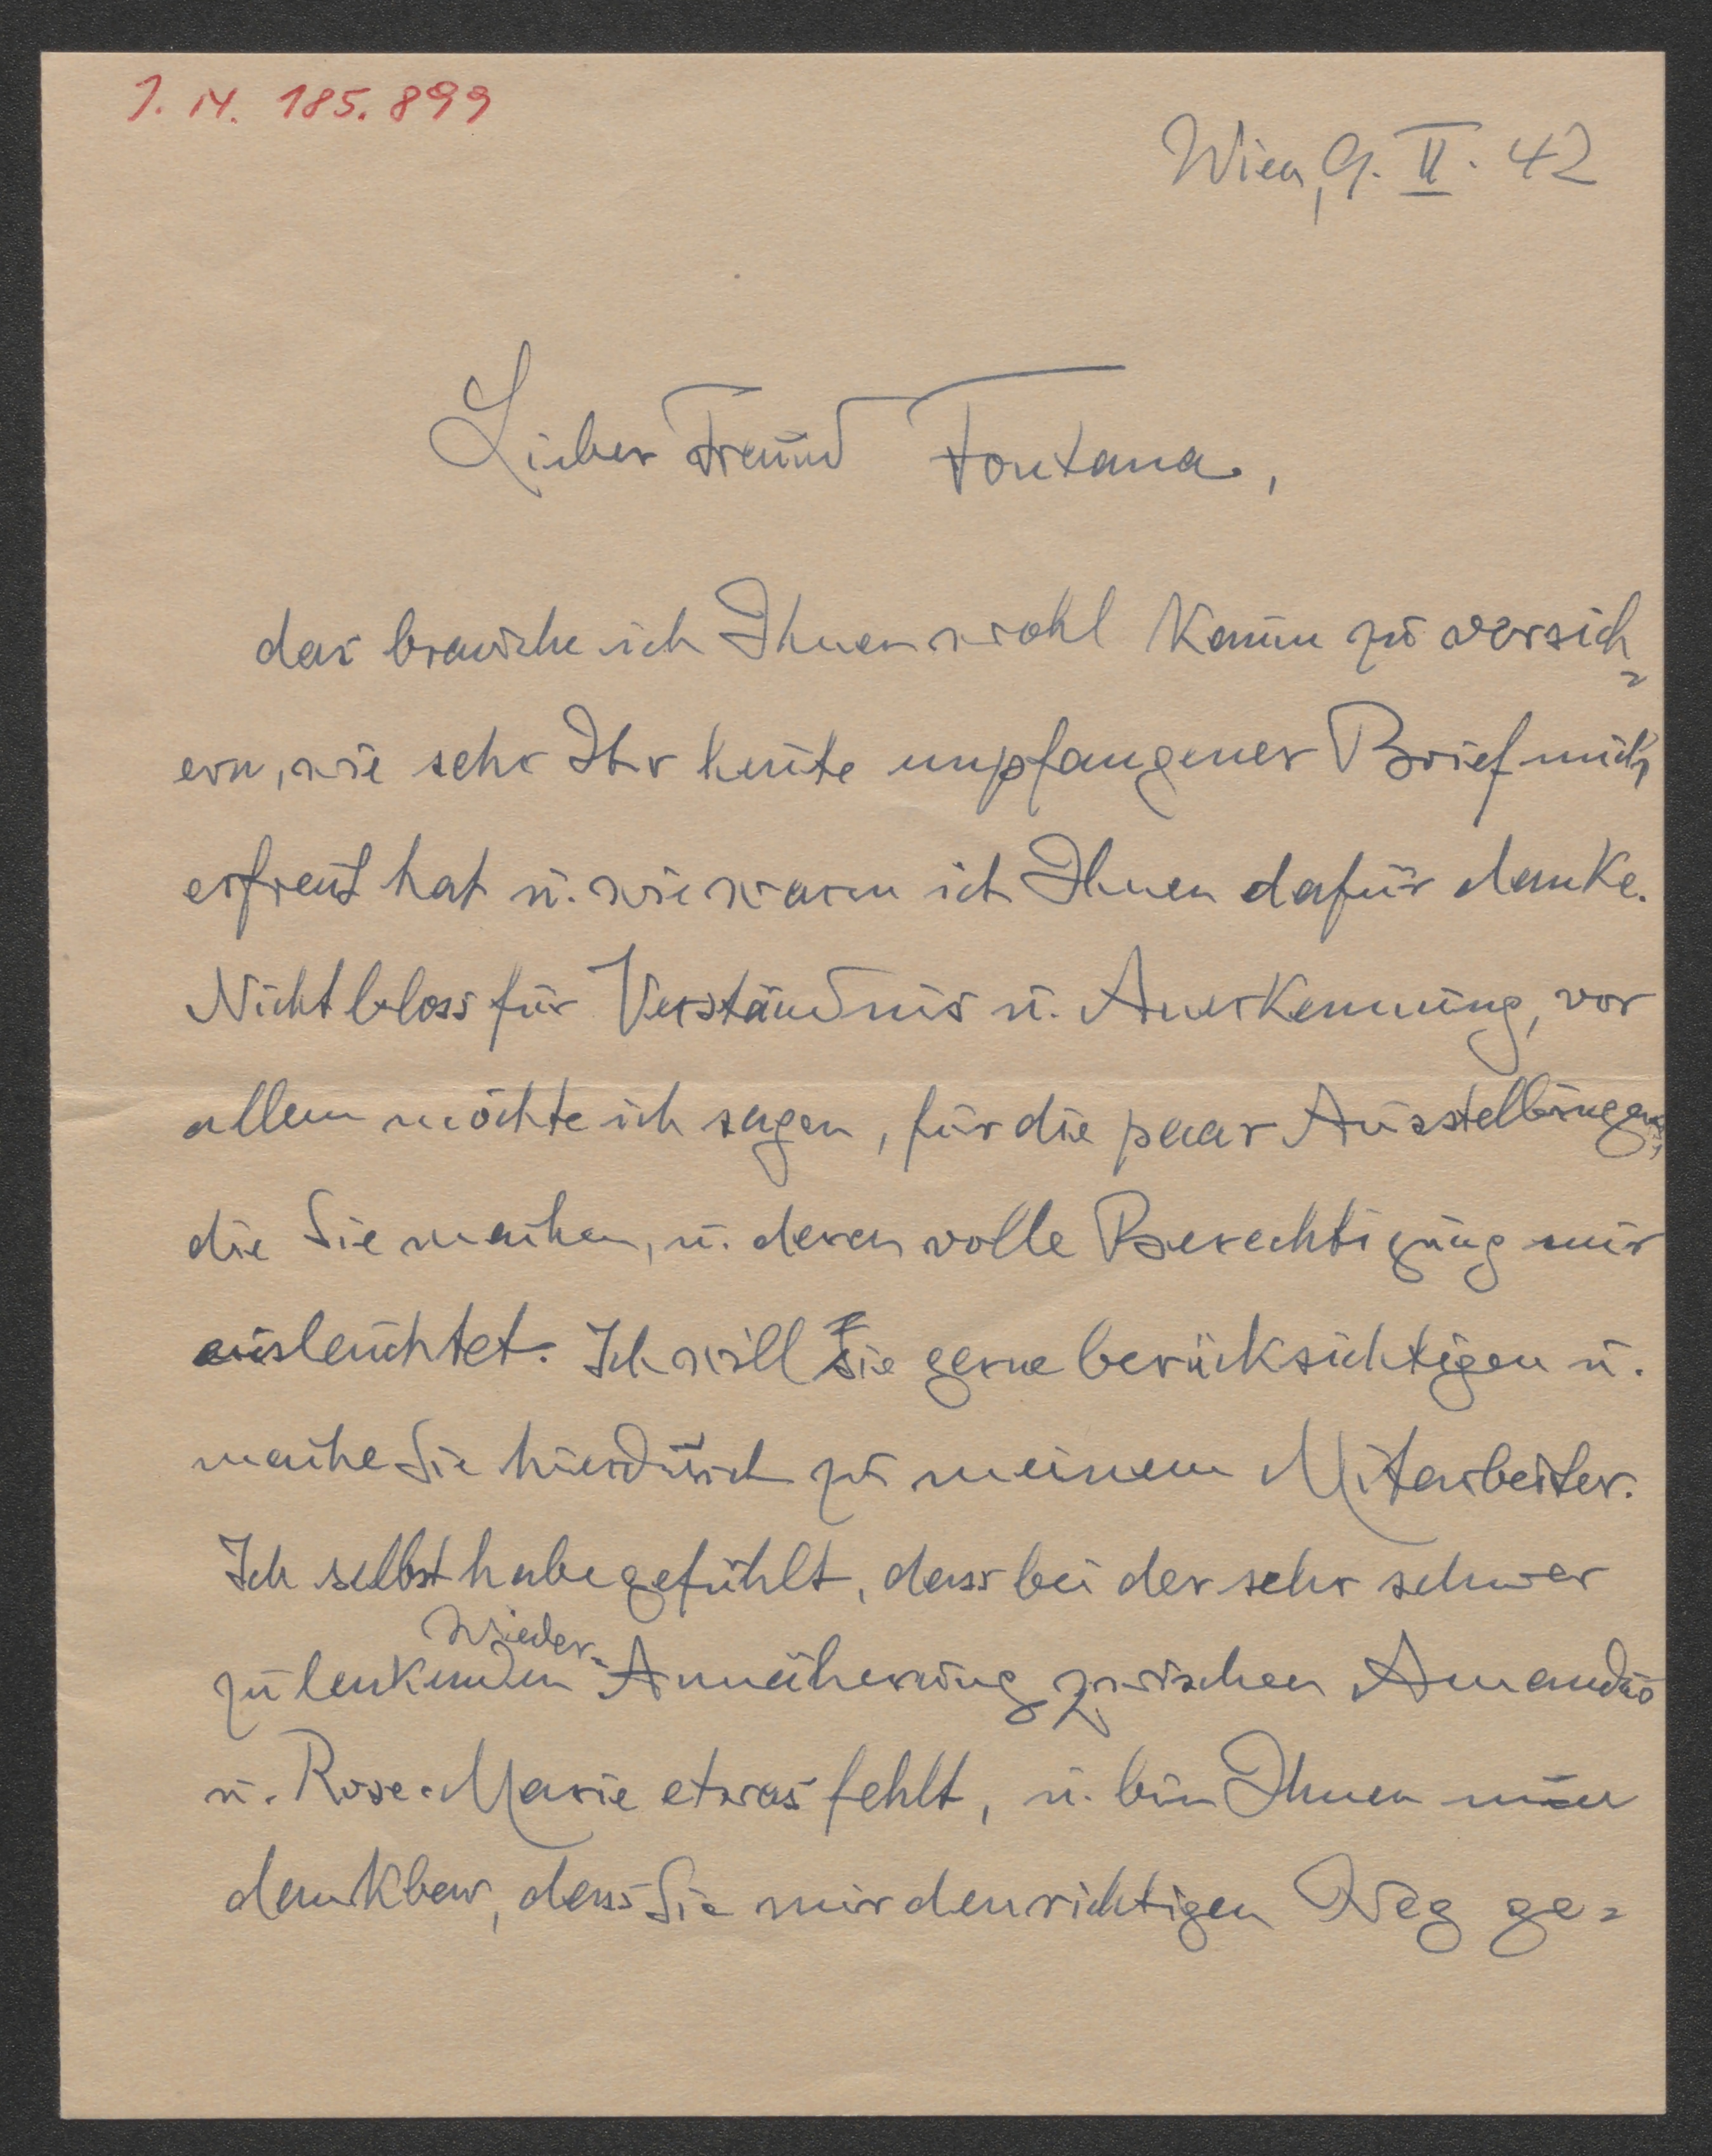 J. N. 185.899
Wien, 9. II. 42
Lieber Freund Fontana,
das brauche ich Ihnen wohl kaum zu versich=
ern, wie sehr Ihr heute empfangener Brief mich
erfreut hat u. wie warm ich Ihnen dafür danke.
Nicht bloss für Verständnis u. Anerkennung, vor
allem möchte ich sagen, für die paar Ausstellungen,
die Sie machen, u. deren volle Berechtigung mir
einleuchtet. Ich will sie gerne berücksichtigen u.
mache Sie hierdurch zu meinem Mitarbeiter.
Ich selbst habe gefühlt, dass bei der sehr schwer
wieder-
zu lenkenden Annäherung zwischen
u. Rose-Marie etwas fehlt, u. bin Ihnen nun
dankbar, dass Sie mir den richtigen Weg ge=